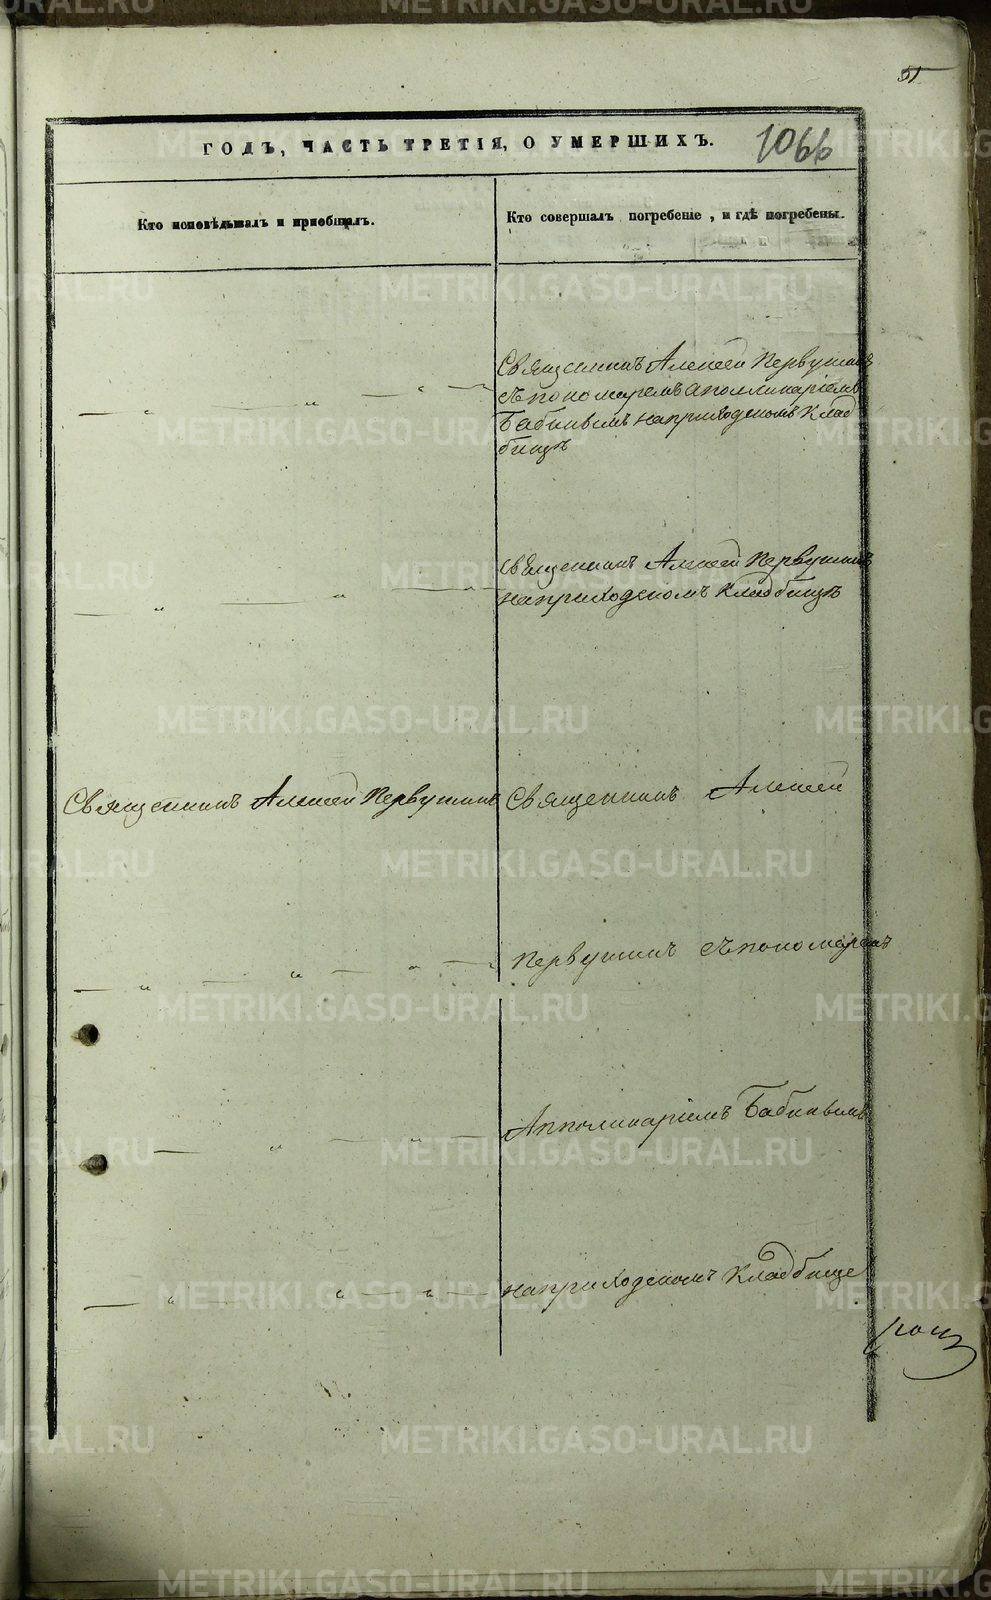 51
ГОДЪ, ЧАСТЬ ТРЕТІЯ, О УМЕРШИХЪ.
1066
Кто исповѣдывалъ и приобщалъ.
Кто совершалъ погребеніе, и гдѣ погребены.
Священникъ Алексѣй Первушинъ
съ пономаремъ Аполлинаріемъ
Бабинымъ на приходскомъ клад
бищѣ
Священникъ Алексѣй Первушинъ
на приходскомъ кладбищѣ
Священникъ Алексѣй Первушинъ
Священникъ Алексѣй
Первушинъ съ пономаремъ
Апполинаріемъ
на приходскомъ кладбище
METRIKI.GASO-URAL.RU